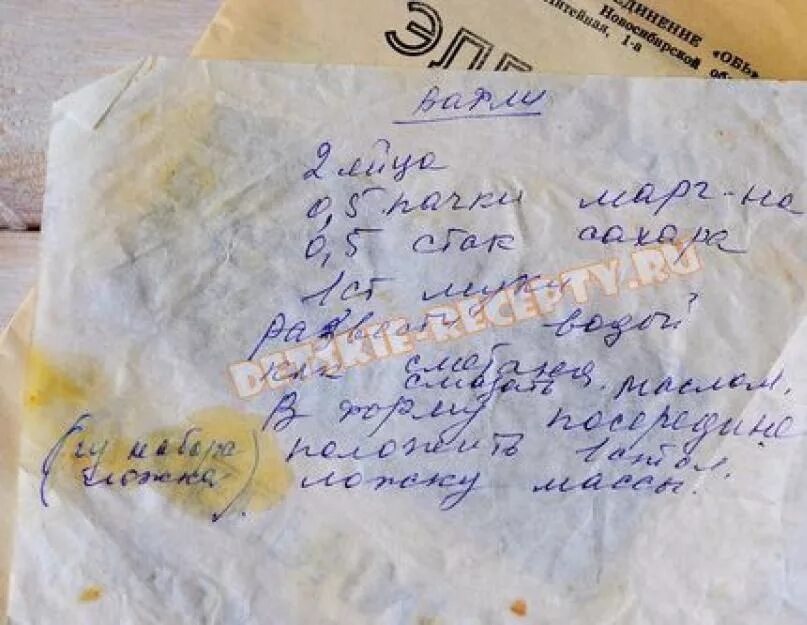 ЕДИНЕНИЕ «ОБЬ»
Новосибирской об
Литейная, 1-а
ЭЛЕ
Вафли
2 яйца
0,5 пачки марг-на
0,5 стак сахара
1 ст муки
развести водой
как сметана
смазать маслом.
В форму посередине
положить 1 стол.
ложку массы.
набора
ложка).
DETSKIE-RECEPTY.RU